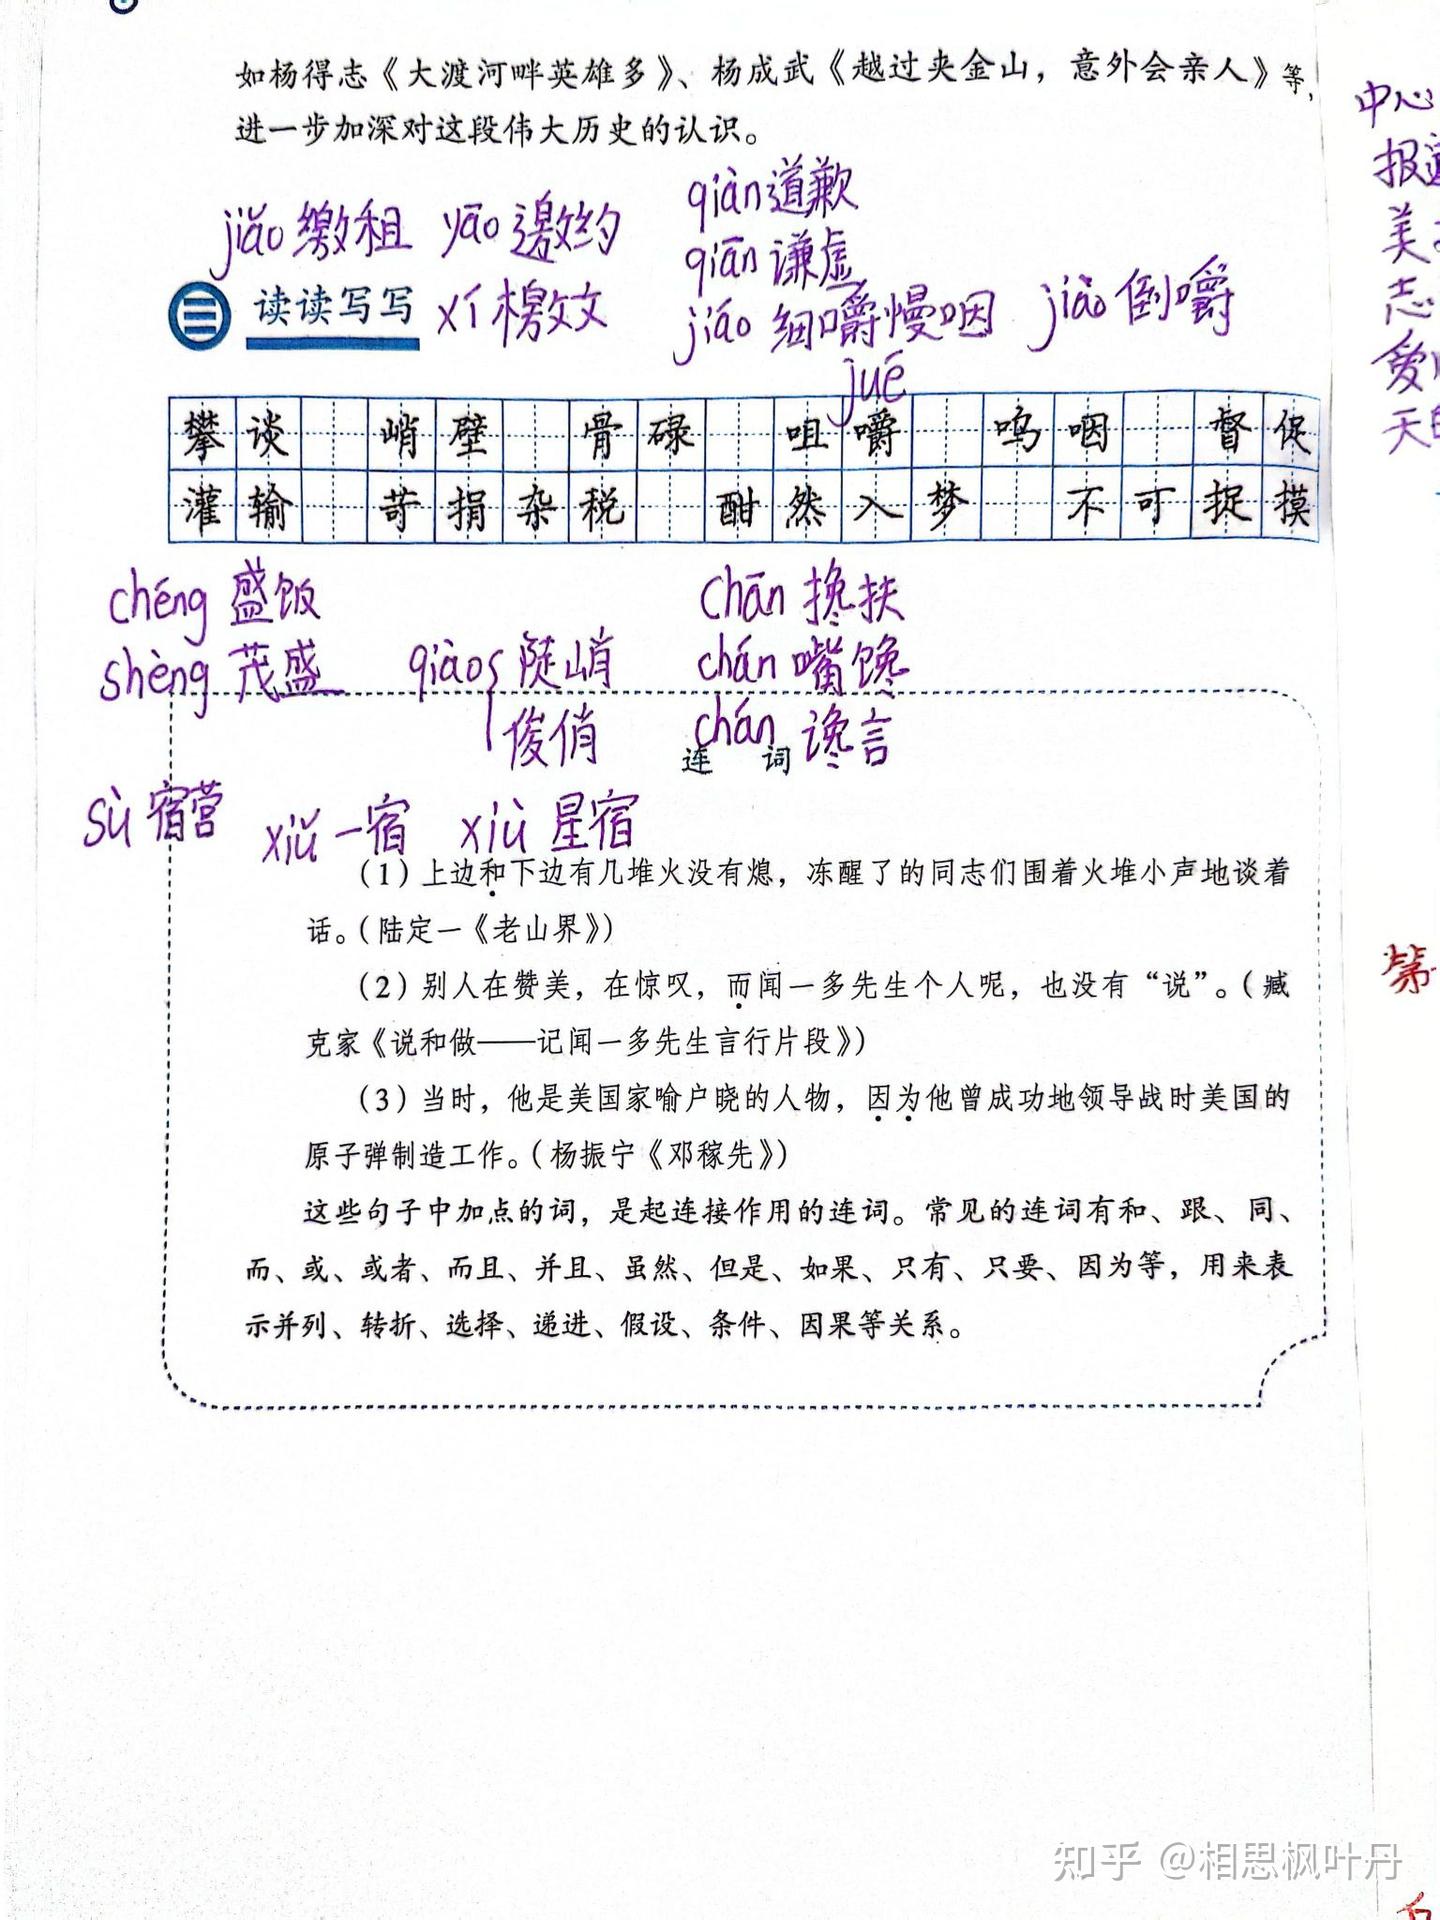 如杨得志《大渡河畔英雄多》、杨成武《越过夹金山，意外会亲人》等，
进一步加深对这段伟大历史的认识。
jiǎo 缴租 yāo 邀约 qiàn 道歉
qiān 谦虚
读读写写 xí 檄文 jiáo 细嚼慢咽 jiào 倒嚼
jué
攀谈 峭壁 骨碌 咀嚼 呜咽 督促
灌输 苛捐杂税 酣然入梦 不可捉摸
chéng 盛饭 chān 搀扶
shèng 茂盛 qiào 陡峭 chán 嘴馋
俊俏 chán 谗言
连 词
sù 宿营 xiǔ 一宿 xiù 星宿
（1）上边和下边有几堆火没有熄，冻醒了的同志们围着火堆小声地谈着
话。（陆定一《老山界》）
（2）别人在赞美，在惊叹，而闻一多先生个人呢，也没有“说”。（臧
克家《说和做——记闻一多先生言行片段》）
（3）当时，他是美国家喻户晓的人物，因为他曾成功地领导战时美国的
原子弹制造工作。（杨振宁《邓稼先》）
这些句子中加点的词，是起连接作用的连词。常见的连词有和、跟、同、
而、或、或者、而且、并且、虽然、但是、如果、只有、只要、因为等，用来表
示并列、转折、选择、递进、假设、条件、因果等关系。
中心
报
美
志
爱
天
第
知乎 @相思枫叶丹